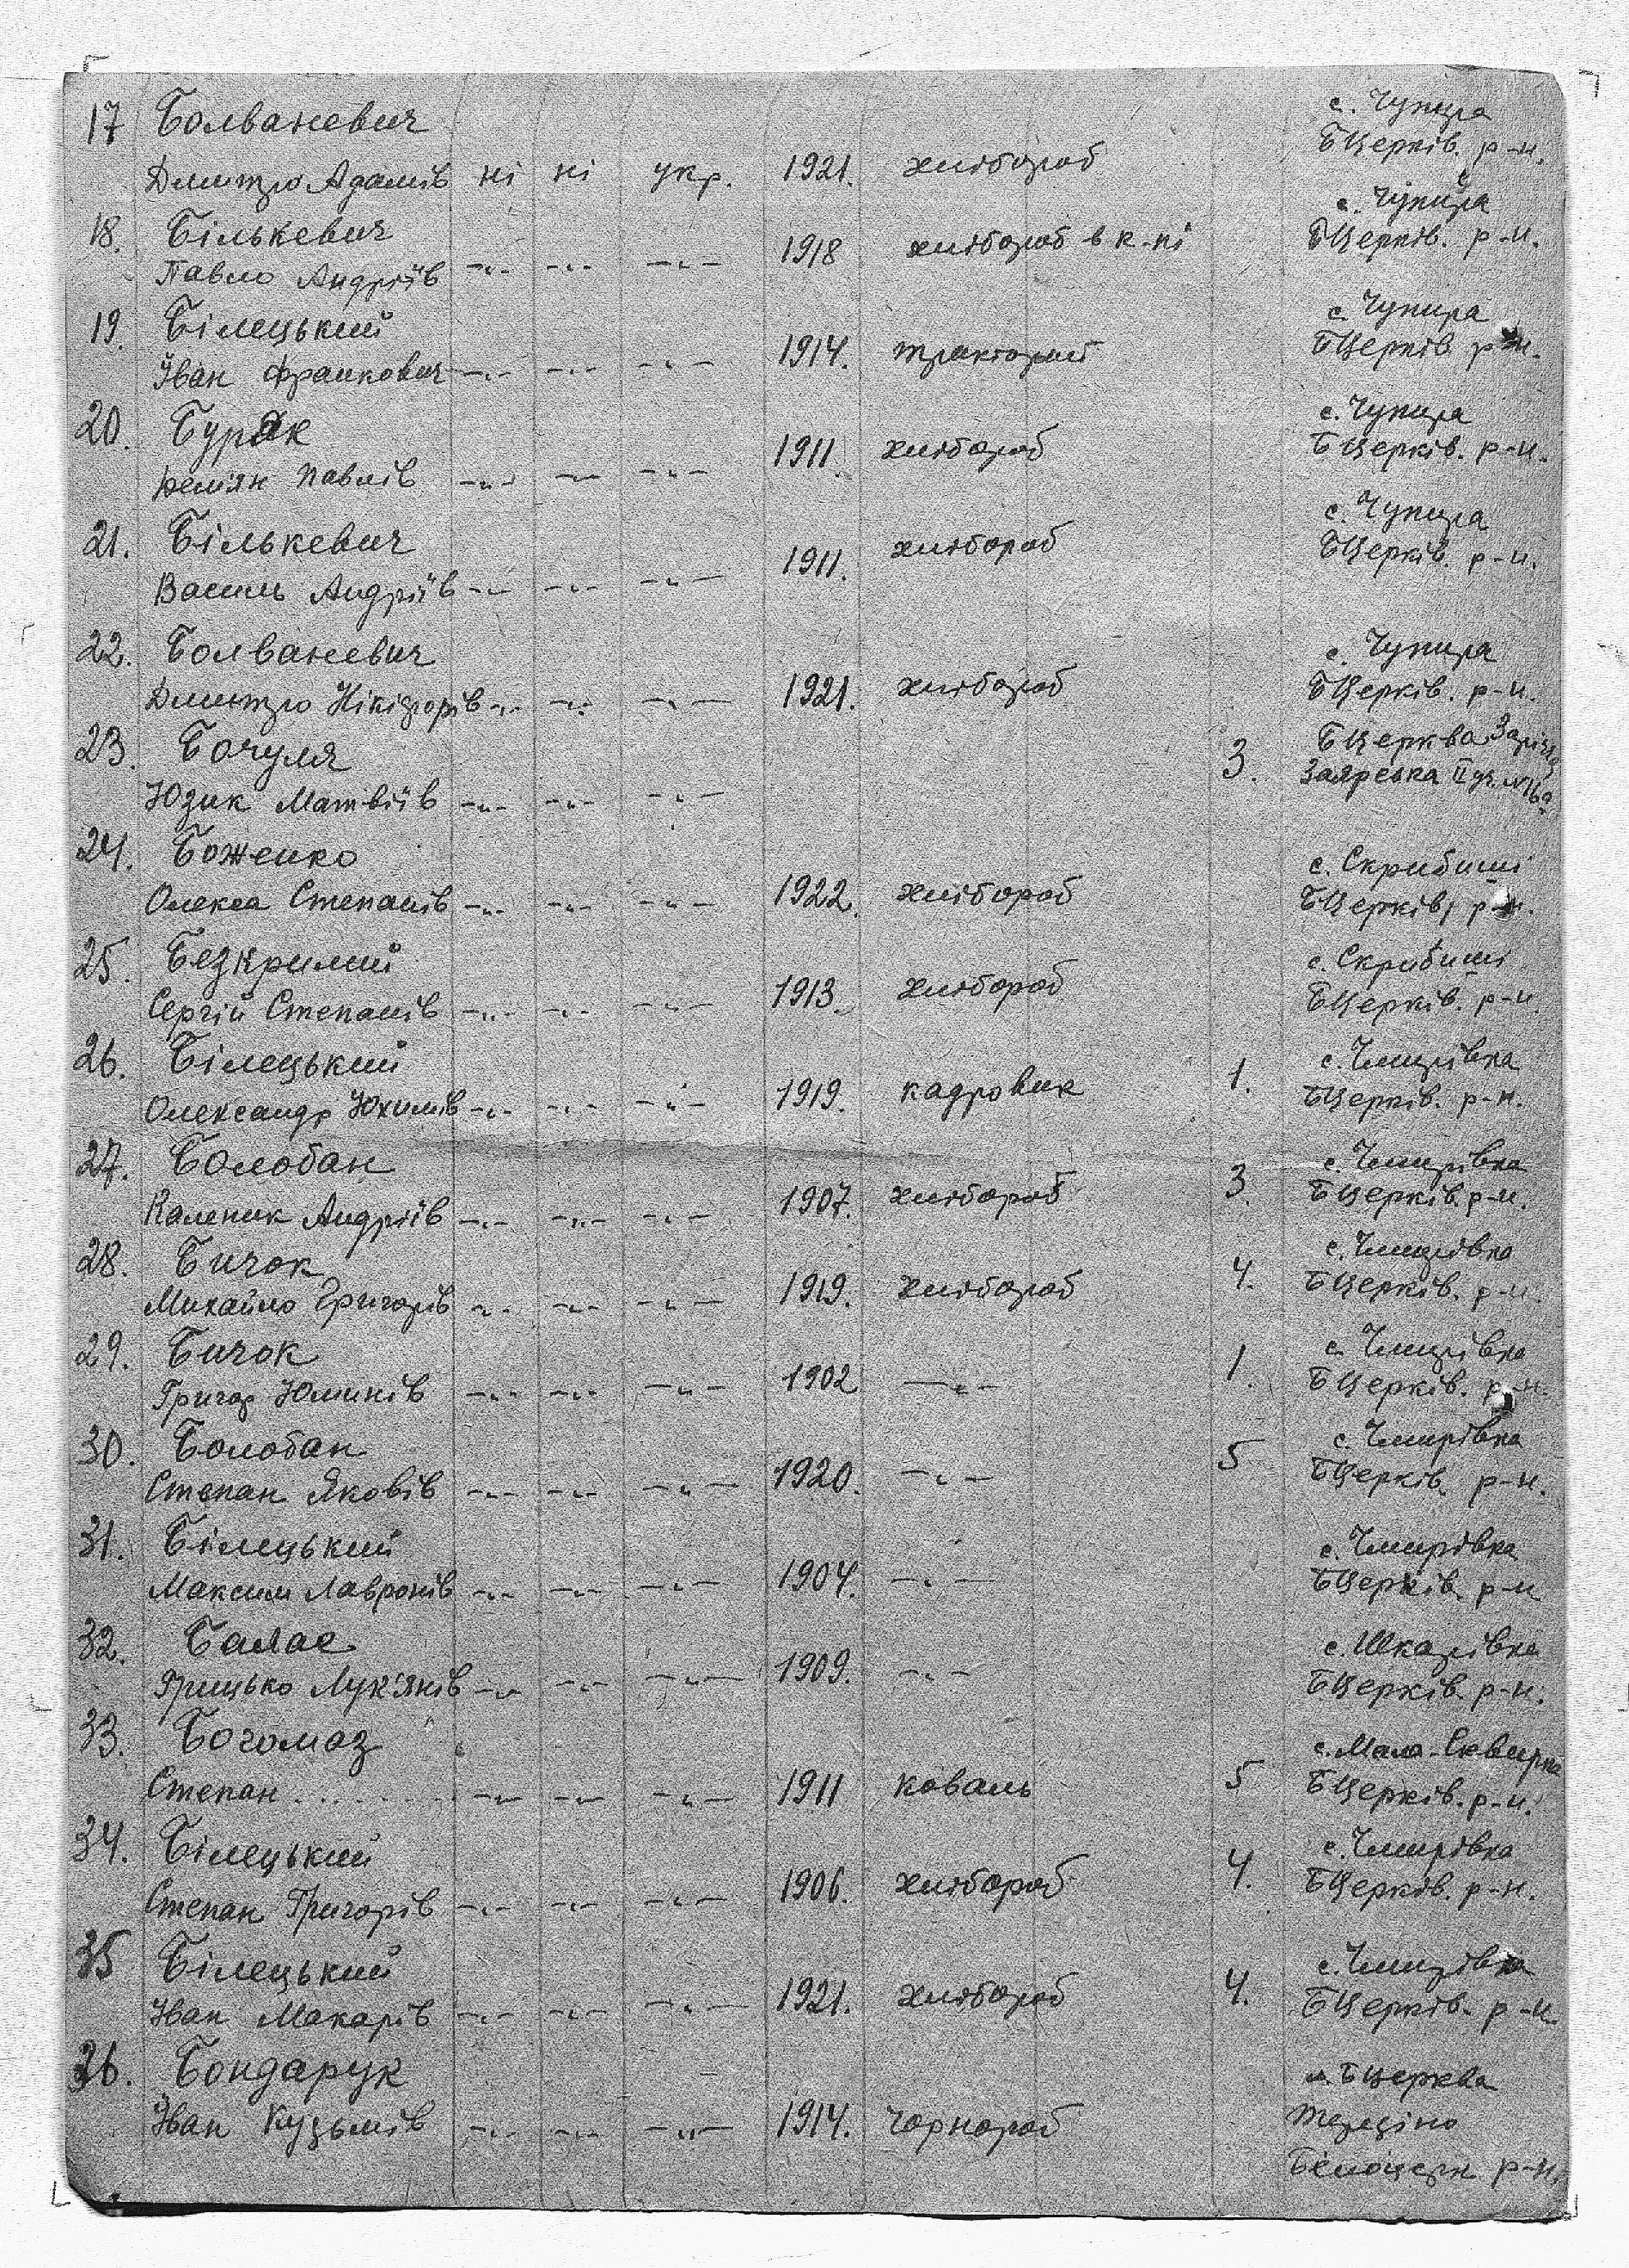 17 Болваневич с. Чупира
БЦерків. р-н.
Дмитро Адамів ні ні укр. 1921. хлібороб
18. Бількевич с. Чупира
Павло Андріїв -"- -"- -"- 1918 хлібороб в к-пі БЦерків. р-н.
19. Білецький с. Чупира
Іван Франкович -"- -"- -"- 1914. тракторист БЦерків р-н.
20. Бурак с. Чупира
Демян Павлів -"- -"- -"- 1911. хлібороб БЦерків. р-н.
21. Бількевич с. Чупира
Василь Андріїв -"- -"- -"- 1911. хлібороб БЦерків. р-н.
22. Болваневич с. Чупира
Дмитро Нікіфорів -"- -"- -"- 1921. хлібороб БЦерків. р-н.
23. Бочуля 3. БЦерква Заріччя
Юзик Матвіїв -"- -"- -"- Заярська II
24. Боженко с. Скребиші
Олекса Степанів -"- -"- -"- 1922. хлібороб БЦерків, р-н.
25. Безкрилий с. Скребиші
Сергій Степанів -"- -"- -"- 1913. хлібороб БЦерків. р-н.
26. Білецький с. Чмирівка
Олександр Юхимів -"- -"- -"- 1919. кадровик 1. БЦерків. р-н.
27. Болобан с. Чмирівка
Каленик Андріїв -"- -"- -"- 1907. хлібороб 3. БЦерків. р-н.
28. Бичок с. Чмирівка
Михайло Григорів -"- -"- -"- 1919. хлібороб 4. БЦерків. р-н.
29. Бичок с. Чмирівка
Григор Юлинів -"- -"- -"- 1902 -"- 1. БЦерків. р-н.
30. Болобан с. Чмирівка
Степан Яковів -"- -"- -"- 1920. -"- 5 БЦерків. р-н.
31. Білецький с. Чмирівка
Максим Лавронів -"- -"- -"- 1904. -"- БЦерків. р-н
32. Балас с. Шкарівка
Грицько Лук'янів -"- -"- -"- 1909. -"- БЦерків. р-н.
33. Богомаз с. Мала-Сквирка
Степан......... -"- -"- -"- 1911 коваль 5 БЦерків. р-н.
34. Білецький с. Чмирівка
Степан Григорів -"- -"- -"- 1906. хлібороб 4. БЦерків. р-н.
35 Білецький с. Чмирівка
Іван Макарів -"- -"- -"- 1921. хлібороб 4. БЦерків. р-н.
36. Бондарук м. БЦерква
Іван Кузьмів -"- -"- -"- 1914. чорнороб
Білоцерк р-н.